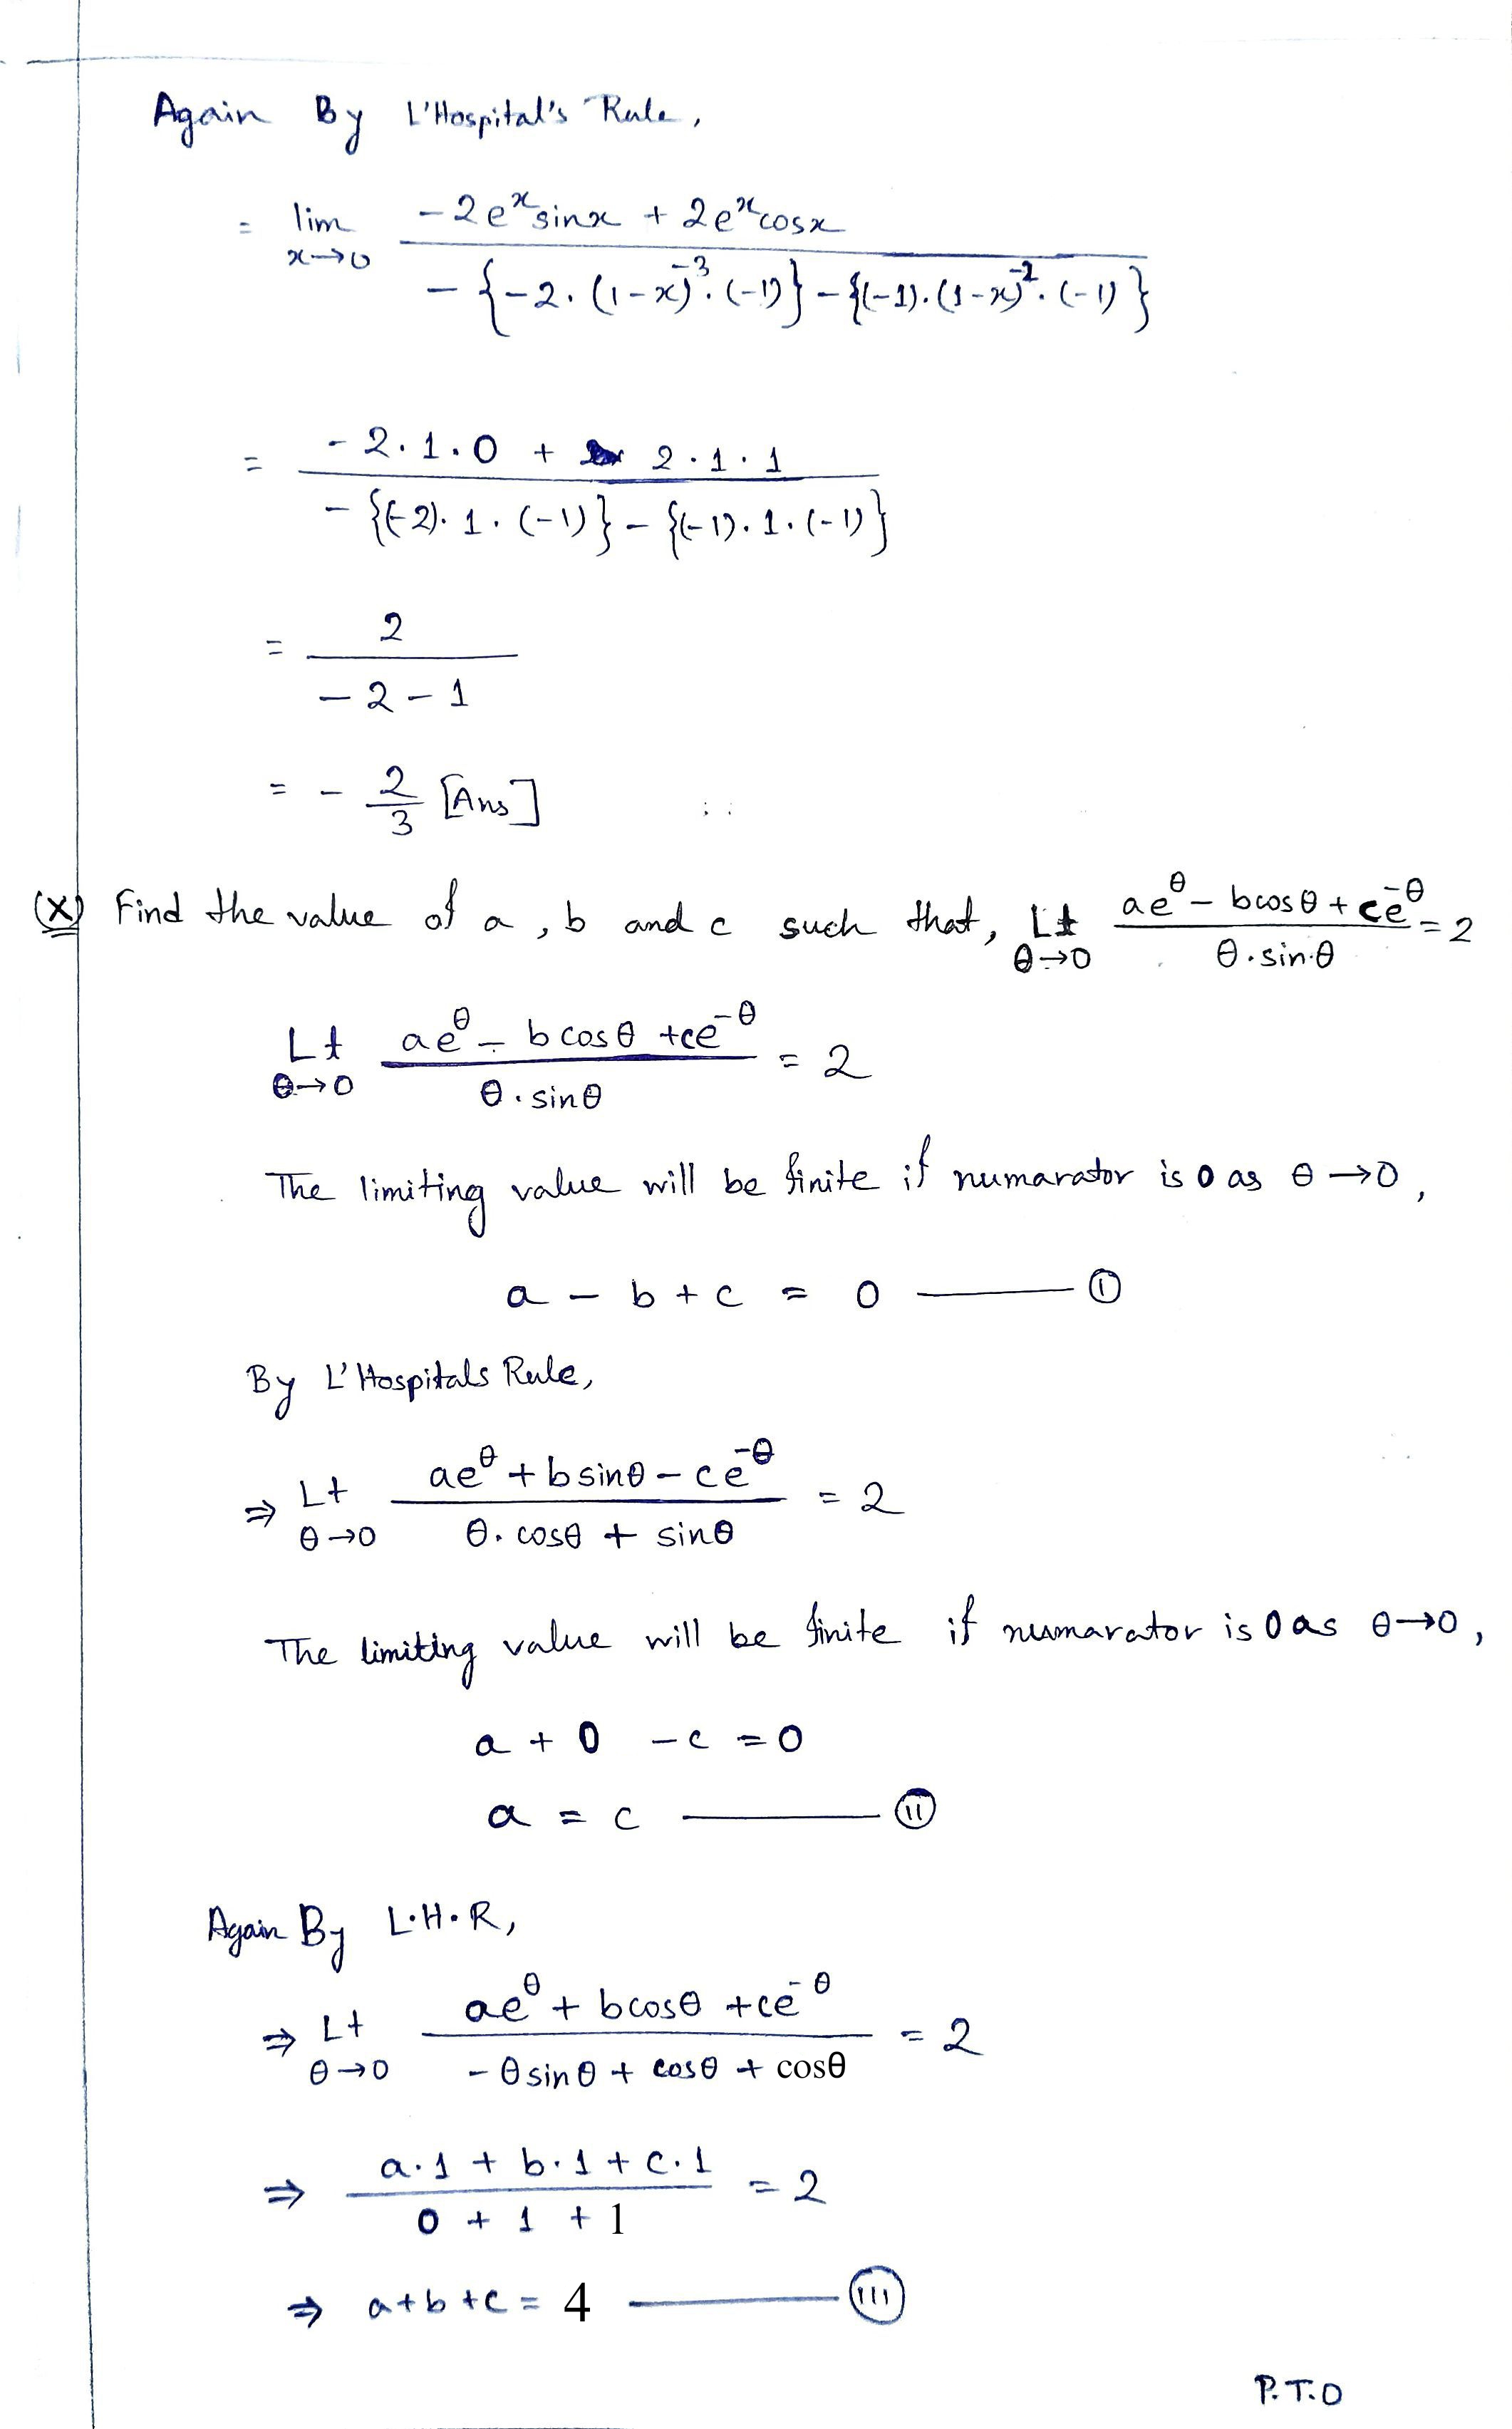 Again By L'Hospital's Rule,
= lim x→0 (-2e^x sinx + 2e^x cosx) / (-{-2.(1-x)^-3.(-1)} - {(-1).(1-x)^-2.(-1)})
= (-2.1.0 + 2.1.1) / (-{(-2).1.(-1)} - {(-1).1.(-1)})
= 2 / (-2-1)
= - 2/3 [Ans]
(x) Find the value of a, b and c such that, Lt θ→0 (ae^θ - bcosθ + ce^-θ) / (θ.sinθ) = 2
Lt θ→0 (ae^θ - bcosθ + ce^-θ) / (θ.sinθ) = 2
The limiting value will be finite if numarator is 0 as θ→0,
a - b + c = 0 —— (I)
By L'Hospitals Rule,
⇒ Lt θ→0 (ae^θ + bsinθ - ce^-θ) / (θ.cosθ + sinθ) = 2
The limiting value will be finite if numarator is 0 as θ→0,
a + 0 - c = 0
a = c —— (II)
Again By L.H.R,
⇒ Lt θ→0 (ae^θ + bcosθ + ce^-θ) / (-θsinθ + cosθ + cosθ) = 2
⇒ (a.1 + b.1 + c.1) / (0 + 1 + 1) = 2
⇒ a+b+c = 4 —— (III)
P.T.O